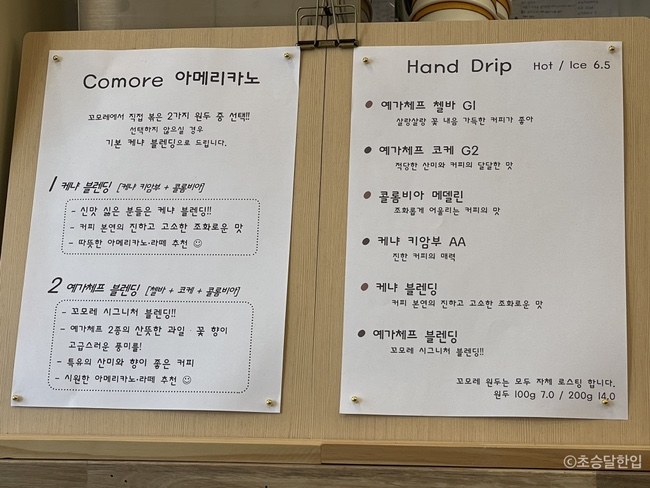 Comore 아메리카노
꼬모레에서 직접 볶은 2가지 원두 중 선택!!
선택하지 않으실 경우
기본 케냐 블렌딩으로 드립니다.
1 케냐 블렌딩 [케냐 키암부 + 콜롬비아]
- 신맛 싫은 분들은 케냐 블렌딩!!
- 커피 본연의 진하고 고소한 조화로운 맛
- 따뜻한 아메리카노·라떼 추천 ☺
2 예가체프 블렌딩 [첼바 + 코케 + 콜롬비아]
- 꼬모레 시그니처 블렌딩!!
- 예가체프 2종의 산뜻한 과일·꽃 향이
고급스러운 풍미를!
- 특유의 산미와 향이 좋은 커피
- 시원한 아메리카노·라떼 추천 ☺
Hand Drip Hot / Ice 6.5
● 예가체프 첼바 G1
살랑살랑 꽃 내음 가득한 커피가 좋아
● 예가체프 코케 G2
적당한 산미와 커피의 달달한 맛
● 콜롬비아 메델린
조화롭게 어울리는 커피의 맛
● 케냐 키암부 AA
진한 커피의 매력
● 케냐 블렌딩
커피 본연의 진하고 고소한 조화로운 맛
● 예가체프 블렌딩
꼬모레 시그니처 블렌딩!!
꼬모레 원두는 모두 자체 로스팅 합니다.
원두 100g 7.0 / 200g 14.0
©초승달한입